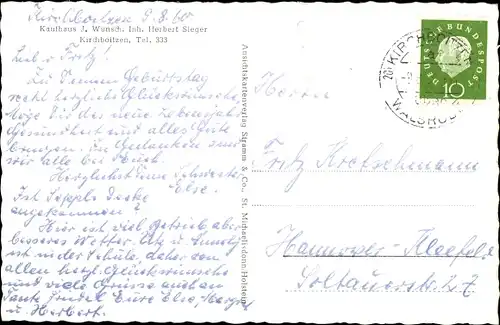 Kirchboitzen 9.8.60
Kaufhaus J. Wunsch. Inh. Herbert Sieger
Kirchboitzen, Tel. 333
Lieb. Fritz!
Zu Deinem Geburtstag
recht herzliche Glückwünsche,
Möge Dir das neue Lebensjahr
Gesundheit und alles Gute
bringen. In Gedanken sind
wir alle bei Euch.
Herzlichst Deine Schwester
Else.
Ist Seppls Decke
angekommen?
Hier ist viel Betrieb, aber
besseres Wetter. Utz u.
ist in der Schule, daher von
allen herzl. Glückwünsche
und viele Grüsse auch an
Tante Eure Else,
u. Herbert.
Ansichtskartenverlag Stramm & Co., St. Michaelisdonn/Holstein
DEUTSCHE BUNDESPOST
10
KIRCHBOITZEN
WALSRODE
Herrn
Fritz Kretschmann
Hannover-Kleefeld
Soltauerstr. 27.